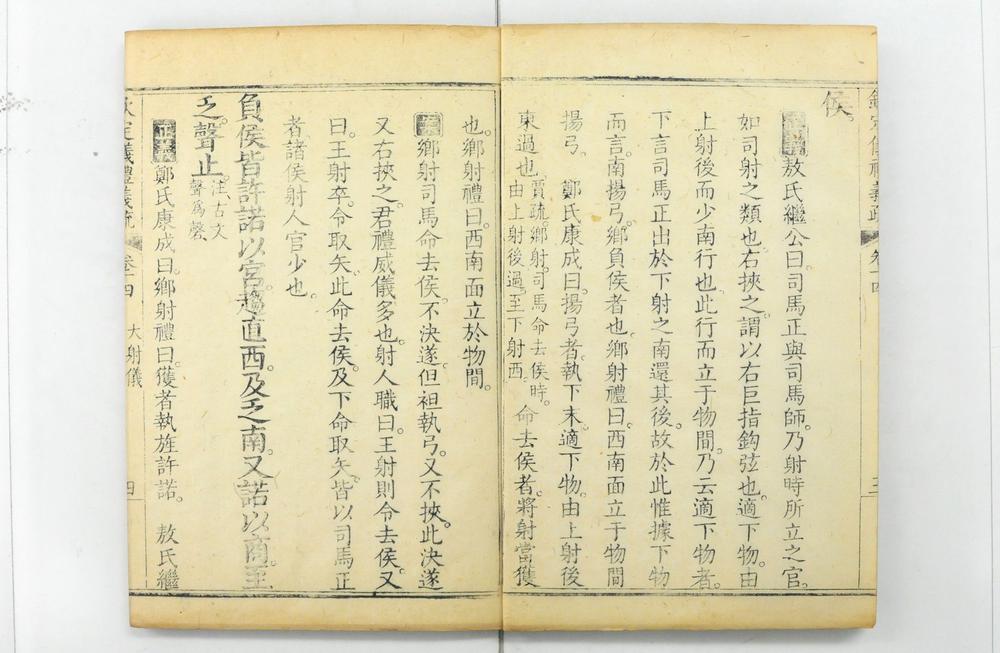 侯。
正義敖氏繼公曰。司馬正與司馬師。乃射時所立之官。
如司射之類也。右挾之。謂以右巨指鈎弦也。適下物。由
上射後而少南行也。此行而立于物間。乃云適下物者。
下言司馬正出於下射之南還其後。故於此惟據下物
而言。南揚弓。鄉負侯者也。鄉射禮曰。西南面立于物間
揚弓。 鄭氏康成曰。揚弓者。執下末。適下物。由上射後
東過也。賈疏。鄉射。司馬命去侯時。由上射後過。至下射西。命去侯者。將射當獲
也。鄉射禮曰。西南面立於物間。
案鄉射司馬命去侯。不決遂。但袒執弓。又不挾。此決遂
又右挾之。君禮威儀多也。射人職曰。王射則令去侯。又
曰。王射卒。令取矢。此命去侯。及下命取矢。皆以司馬正
者。諸侯射人官少也。
負侯皆許諾以宮。趨直西。及乏南。又諾以商。至
乏。聲止。注。古文聲爲磬。
正義鄭氏康成曰。鄉射禮曰。獲者執旌許諾。 敖氏繼
欽定儀禮義疏 卷十四 大射儀 四